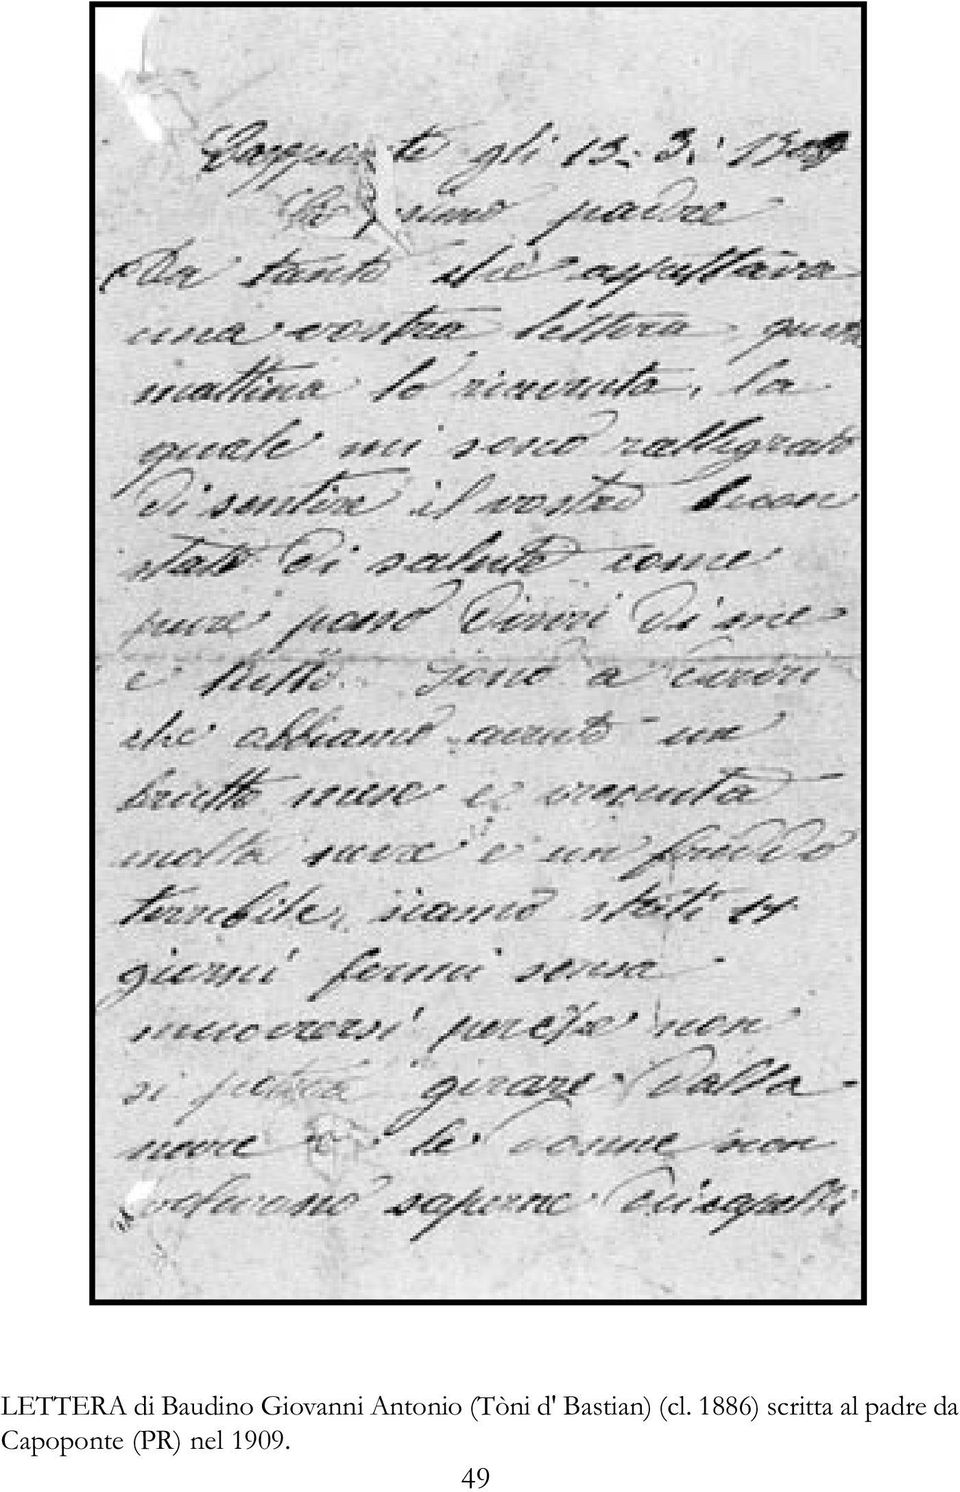 Cappoponte gli 13. 3. 1909
padre
Da tanto che aspettava
una vostra lettera questa
mattina lo ricevuta, la
quale mi seno rallegrato
di sentire il vostro buon
stato di salute come
pure posso dirvi di me
e
che abbiamo avuto un
brutto mese e
molta neve e un freddo
terrebile, siamo stati 14
giorni fermi sensa
muoversi perche non
si poteva girare dalla
neve e le donne non
volevono saperne
LETTERA di Baudino Giovanni Antonio (Tòni d' Bastian) (cl. 1886) scritta al padre da
Capoponte (PR) nel 1909.
49